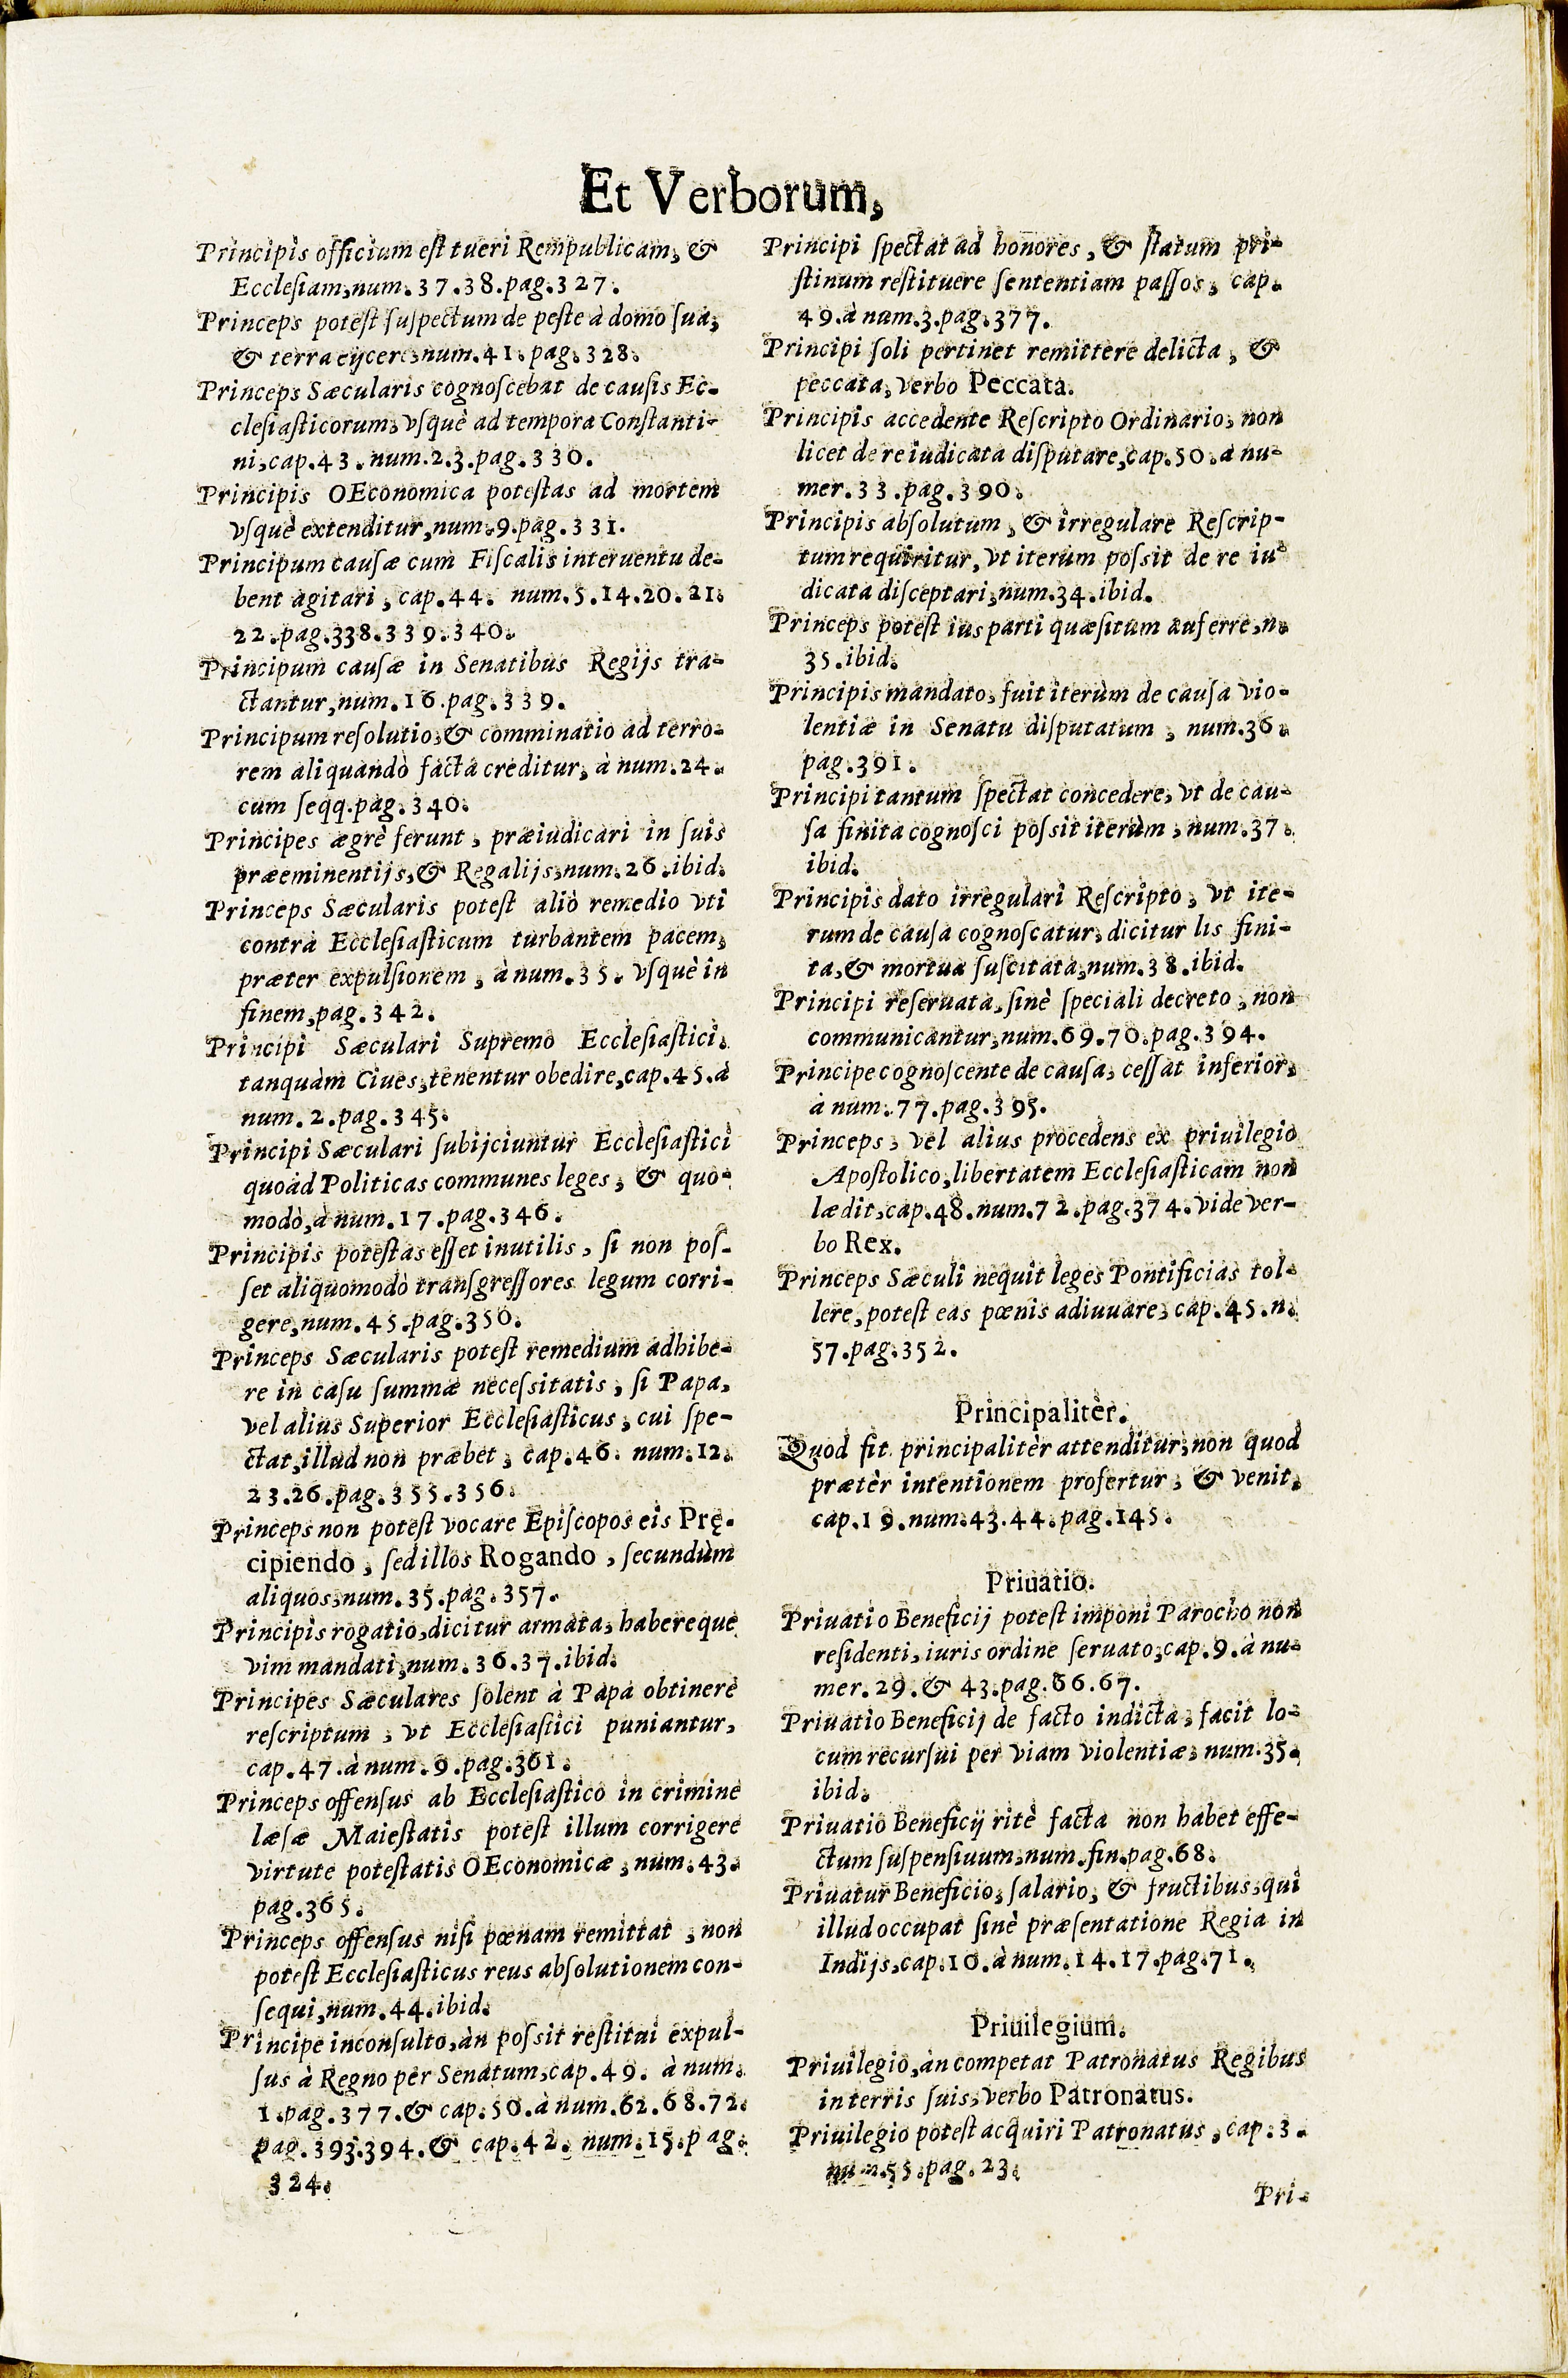 Et Verborum,
Principis officium eſt tueri Rempublicam, &
Eccleſiam, num. 37.38. pag. 327.
Princeps poteſt ſuſpectum de peſte à domo ſua,
& terra eijcere, num. 41. pag. 328.
Princeps Sæcularis cognoſcebat de cauſis Ec-
cleſiaſticorum, vſquè ad tempora Conſtanti-
ni, cap. 43. num. 2.3. pag. 330.
Principis OEconomica poteſtas ad mortem
vſquè extenditur, num. 9. pag. 331.
Principum cauſæ cum Fiſcalis interuentu de-
bent agitari, cap. 44. num. 5.14.20.21.
22. pag. 338.339.340.
Principum cauſæ in Senatibus Regijs tra-
ctantur, num. 16. pag. 339.
Principum reſolutio, & comminatio ad terro-
rem aliquandò facta creditur, à num. 24.
cum ſeqq. pag. 340.
Principes ægrè ferunt, præiudicari in ſuis
præeminentijs, & Regalijs, num. 26. ibid.
Princeps Sæcularis poteſt aliò remedio vti
contrà Eccleſiaſticum turbantem pacem,
præter expulſionem, à num. 35. vſquè in
finem, pag. 342.
Principi Sæculari Supremo Eccleſiaſtici,
tanquàm Ciues, tenentur obedire, cap. 45. à
num. 2. pag. 345.
Principi Sæculari ſubijciuntur Eccleſiaſtici
quoàd Politicas communes leges, & quo-
modò, à num. 17. pag. 346.
Principis poteſtas eſſet inutilis, ſi non poſ-
ſet aliquomodò tranſgreſſores legum corri-
gere, num. 45. pag. 350.
Princeps Sæcularis poteſt remedium adhibe-
re in caſu ſummæ neceſsitatis, ſi Papa,
vel alius Superior Eccleſiaſticus, cui ſpe-
ctat, illud non præbet, cap. 46. num. 12.
23.26. pag. 355.356.
Princeps non poteſt vocare Epiſcopos eis Prę-
cipiendo, ſed illos Rogando, ſecundùm
aliquos, num. 35. pag. 357.
Principis rogatio, dicitur armata, habereque
vim mandati, num. 36.37. ibid.
Principes Sæculares ſolent à Papa obtinere
reſcriptum, vt Eccleſiaſtici puniantur,
cap. 47. à num. 9. pag. 361.
Princeps offenſus ab Eccleſiaſtico in crimine
læſæ Maieſtatis poteſt illum corrigere
virtute poteſtatis OEconomicæ, num. 43.
pag. 365.
Princeps offenſus niſi pœnam remittat, non
poteſt Eccleſiaſticus reus abſolutionem con-
ſequi, num. 44. ibid.
Principe inconſulto, àn poſsit reſtitui expul-
ſus à Regno per Senatum, cap. 49. à num.
1. pag. 377. & cap. 50. à num. 62.68.72.
pag. 393.394. & cap. 42. num. 15. pag.
324.
Principi ſpectat ad honores, & ſtatum pri-
ſtinum reſtituere ſententiam paſſos, cap.
49. à num. 3. pag. 377.
Principi ſoli pertinet remittere delicta, &
peccata, verbo Peccata.
Principis accedente Reſcripto Ordinario, non
licet de re iudicata diſputare, cap. 50. à nu-
mer. 33. pag. 390.
Principis abſolutum, & irregulare Reſcrip-
tum requiritur, vt iterum poſsit de re iu-
dicata diſceptari, num. 34. ibid.
Princeps poteſt ius parti quæſitum auferre, n.
35. ibid.
Principis mandato, fuit iterùm de cauſa vio-
lentiæ in Senatu diſputatum, num. 36.
pag. 391.
Principi tantum ſpectat concedere, vt de cau-
ſa finita cognoſci poſsit iterùm, num. 37.
ibid.
Principis dato irregulari Reſcripto, vt ite-
rum de cauſa cognoſcatur, dicitur lis fini-
ta, & mortua ſuſcitata, num. 38. ibid.
Principi reſeruata, ſinè ſpeciali decreto, non
communicantur, num. 69.70. pag. 394.
Principe cognoſcente de cauſa, ceſſat inferior,
à num. 77. pag. 395.
Princeps, vel alius procedens ex priuilegio
Apoſtolico, libertatem Eccleſiaſticam non
lædit, cap. 48. num. 72. pag. 374. vide ver-
bo Rex.
Princeps Sæculi nequit leges Pontificias tol-
lere, poteſt eas pœnis adiuuare, cap. 45. n.
57. pag. 352.
Principalitèr.
Quod fit principalitèr attenditur, non quod
prætèr intentionem profertur, & venit,
cap. 19. num. 43.44. pag. 145.
Priuatio.
Priuatio Beneficij poteſt imponi Parocho non
reſidenti, iuris ordine ſeruato, cap. 9. à nu-
mer. 29. & 43. pag. 66.67.
Priuatio Beneficij de facto indicta, facit lo-
cum recurſui per viam violentiæ, num. 35.
ibid.
Priuatio Beneficij ritè facta non habet effe-
ctum ſuſpenſiuum, num. fin. pag. 68.
Priuatur Beneficio, ſalario, & fructibus, qui
illud occupat ſinè præſentatione Regia in
Indijs, cap. 10. à num. 14.17. pag. 71.
Priuilegium.
Priuilegio, àn competat Patronatus Regibus
in terris ſuis, verbo Patronatus.
Priuilegio poteſt acquiri Patronatus, cap. 3.
num. 55. pag. 23.
Pri-